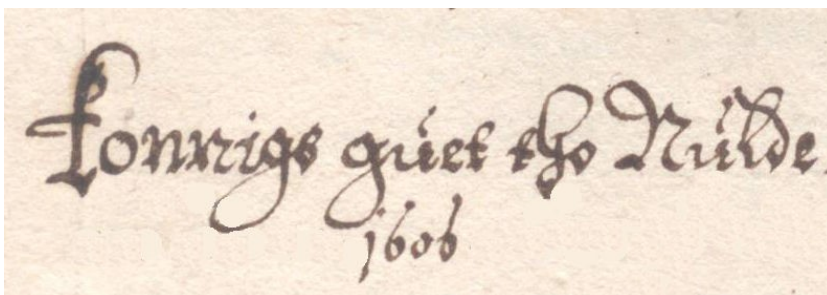 Konnigs guet tho Nulde.
1606